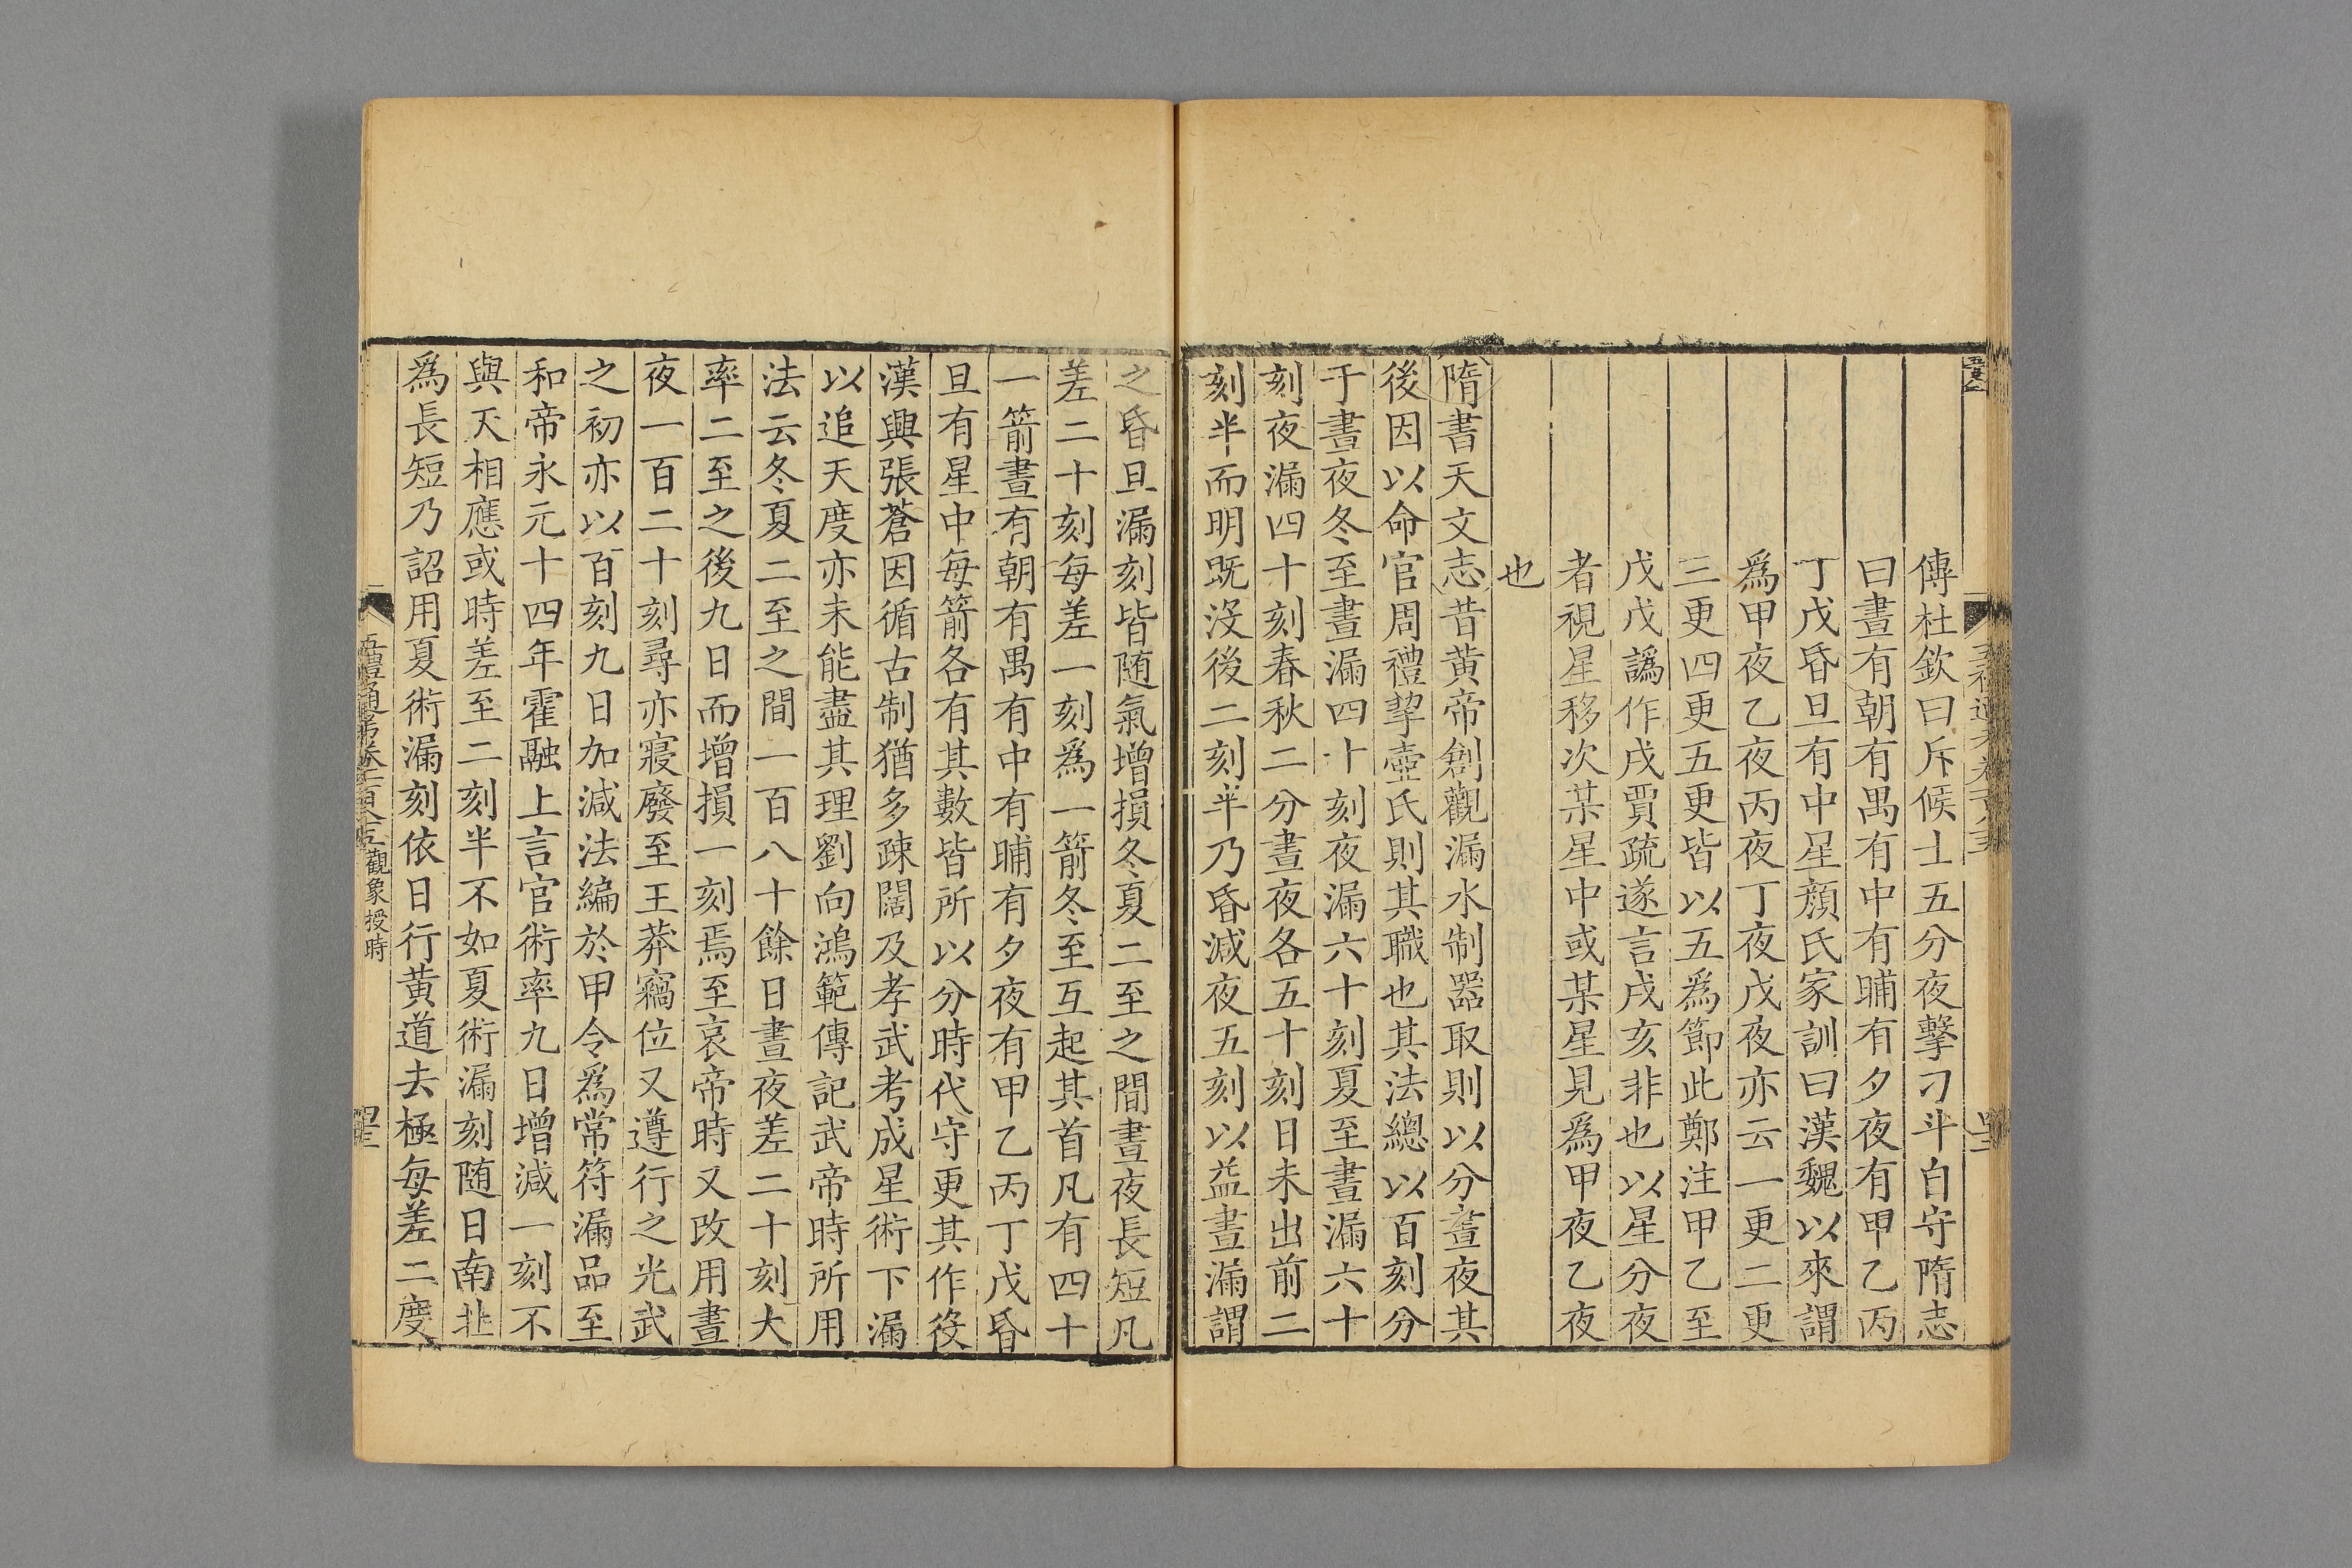 傳杜欽曰斥候士五分夜擊刁斗自守隋志
曰晝有朝有禺有中有晡有夕夜有甲乙丙
丁戊昏旦有中星顏氏家訓曰漢魏以來謂
爲甲夜乙夜丙夜丁夜戊夜亦云一更二更
三更四更五更皆以五爲節此鄭注甲乙至
戊戊譌作戌賈疏遂言戌亥非也以星分夜
者視星移次某星中或某星見爲甲夜乙夜
也
隋書天文志昔黄帝創觀漏水制器取則以分晝夜其
後因以命官周禮挈壺氏則其職也其法總以百刻分
于晝夜冬至晝漏四十刻夜漏六十刻夏至晝漏六十
刻夜漏四十刻春秋二分晝夜各五十刻日未出前二
刻半而明既沒後二刻半乃昏減夜五刻以益晝漏謂
之昏旦漏刻皆随氣增損冬夏二至之間晝夜長短凡
差二十刻每差一刻爲一箭冬至互起其首凡有四十
一箭晝有朝有禺有中有晡有夕夜有甲乙丙丁戊昏
旦有星中每箭各有其數皆所以分時代守更其作役
漢興張蒼因循古制猶多疎闊及孝武考成星術下漏
以追天度亦未能盡其理劉向鴻範傳記武帝時所用
法云冬夏二至之間一百八十餘日晝夜差二十刻大
率二至之後九日而增損一刻焉至哀帝時又改用晝
夜一百二十刻尋亦寢廢至王莽竊位又遵行之光武
之初亦以百刻九日加減法編於甲令爲常符漏品至
和帝永元十四年霍融上言官術率九日增減一刻不
與天相應或時差至二刻半不如夏術漏刻随日南北
爲長短乃詔用夏術漏刻依日行黄道去極每差二度
觀象授時